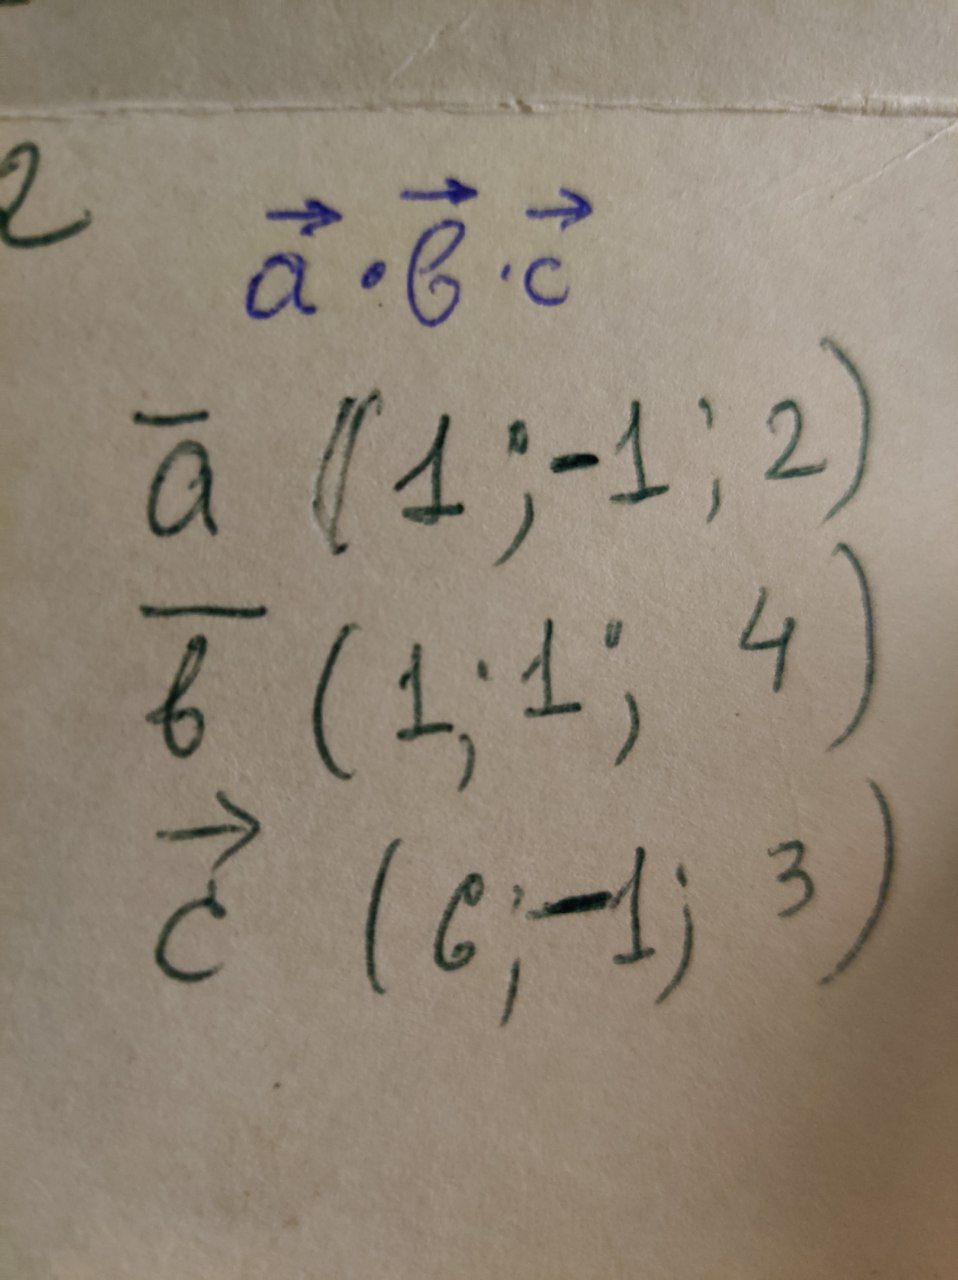 2
a⃗ · b⃗ · c⃗
a̅ (1; -1; 2)
b̅ (1; 1; 4)
c⃗ (6; -1; 3)